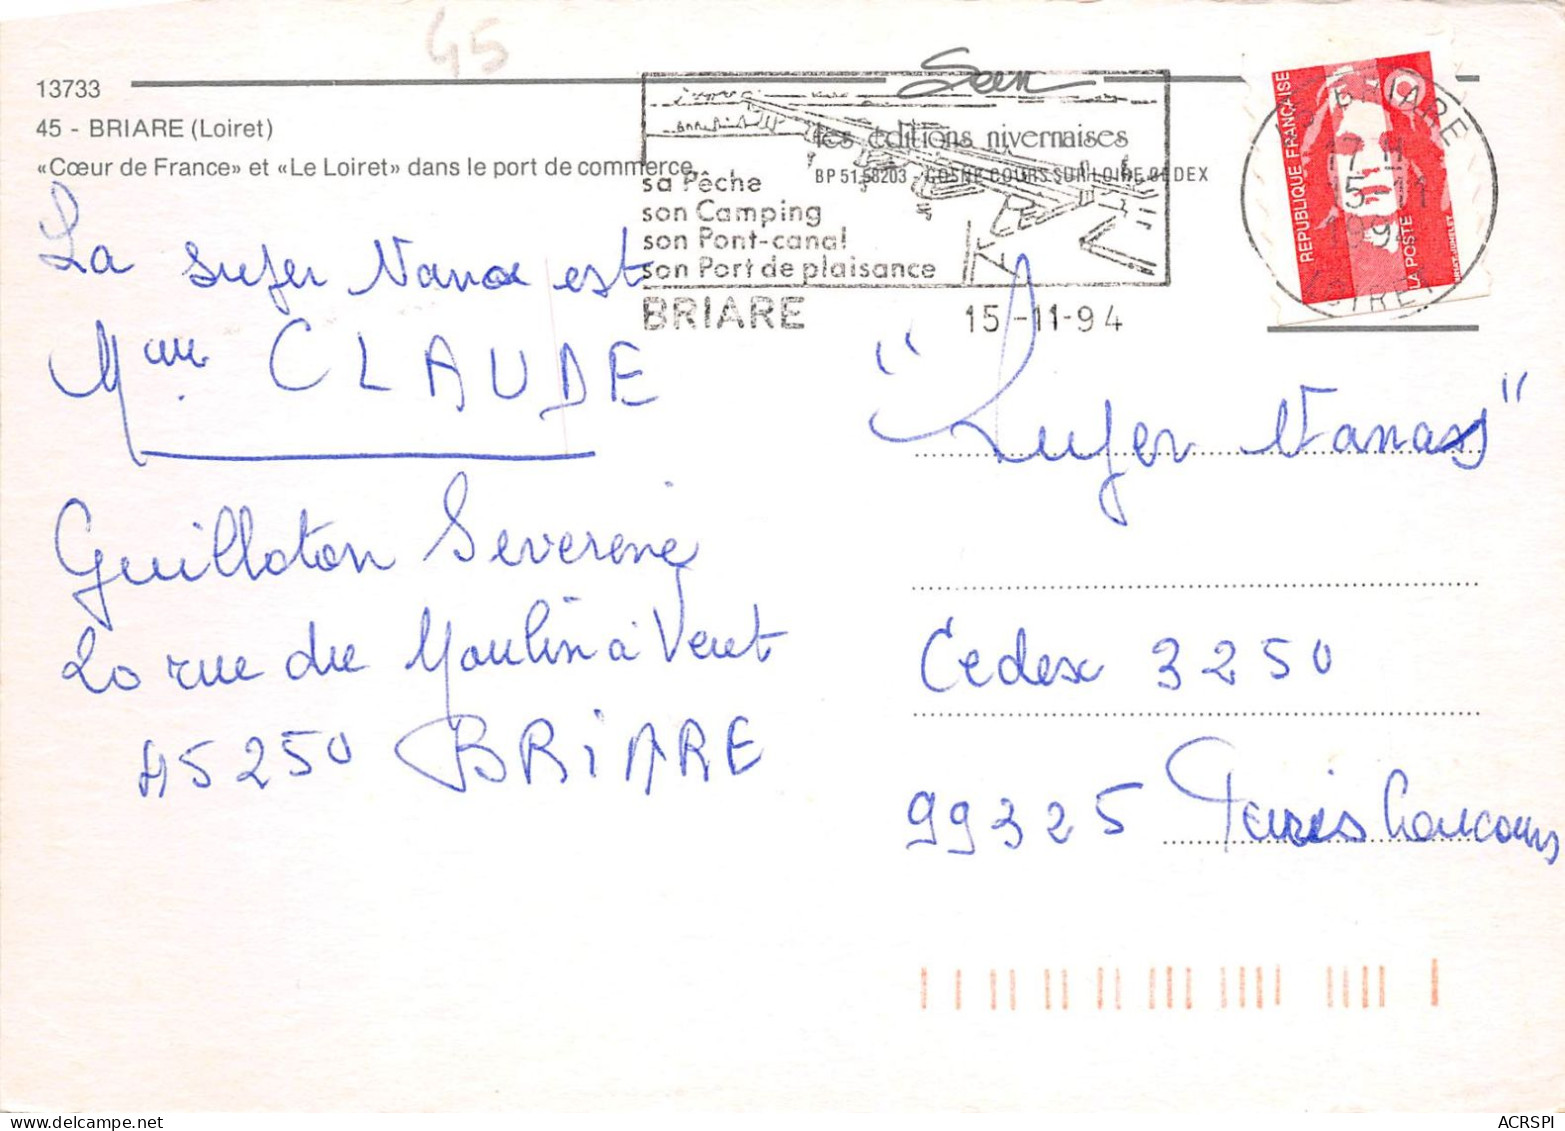 45
13733
45 - BRIARE (Loiret)
«Cœur de France» et «Le Loiret» dans le port de commerce
les éditions nivernaises
BP 51 58203 - COSNE COURS SUR LOIRE CEDEX
sa Pêche
son Camping
son Pont-canal
son Port de plaisance
BRIARE
15-11-94
REPUBLIQUE FRANÇAISE
LA POSTE
BRIARE
17 H
15-11
1994
LOIRET
La super Nana est
Mme CLAUDE
Guilloton Severine
20 rue du Moulin à Vent
45250 BRIARE
"Super Nanas"
Cedex 3250
99325 Paris Concours
ACRSPI